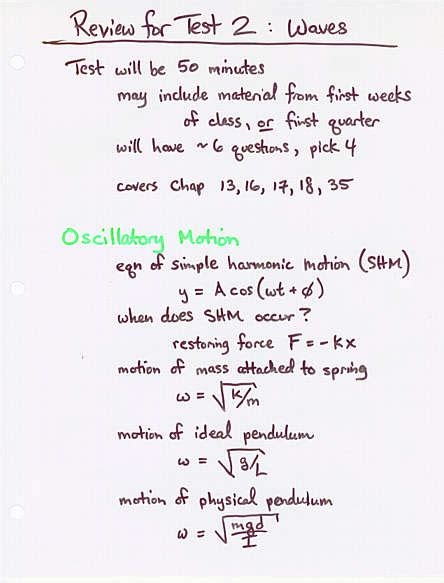 Review for Test 2 : Waves
Test will be 50 minutes
may include material from first weeks
of class, or first quarter
will have ~ 6 questions, pick 4
covers Chap 13, 16, 17, 18, 35
Oscillatory Motion
eqn of simple harmonic motion (SHM)
y = A cos(ωt + φ)
when does SHM occur?
restoring force F = -kx
motion of mass attached to spring
ω = √k/m
motion of ideal pendulum
ω = √g/L
motion of physical pendulum
ω = √mgd/I